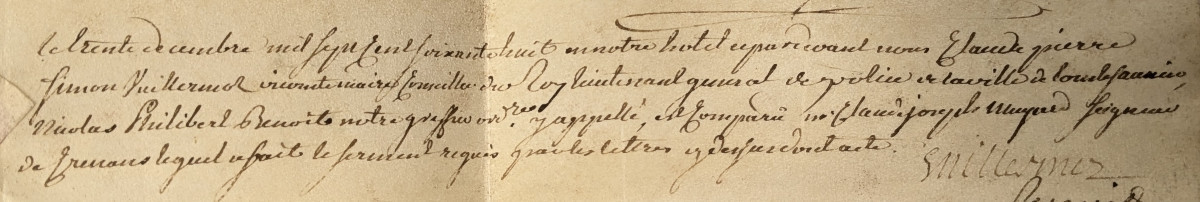 le trente decembre mil sept Cent soixante huit en notre hotel et pardevant nous Claude pierre
Simon Vuillermoz vicomte maire Conseiller du Roy lieutenant general de police de la ville de
Nicolas Philibert Benoit notre greffier ord.re y appellé, est Comparü m.e Claude joseph Seigneur
de Crenans lequel a fait le serment requis par les lettres cy dessus dont acte.
Vuillermoz